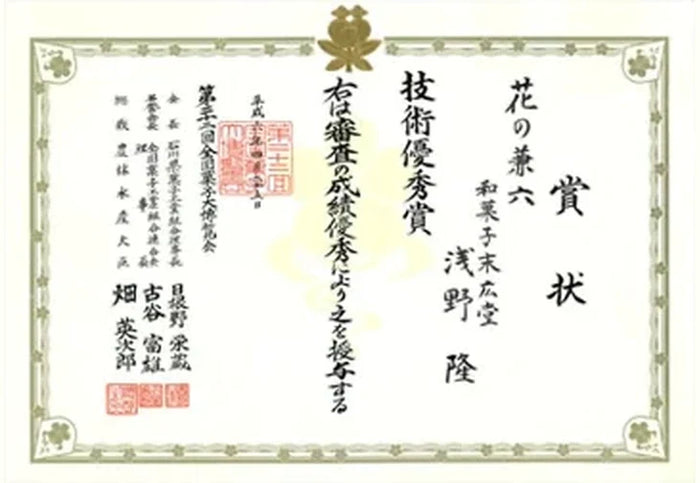 賞状
花の兼六
和菓子末広堂
浅野 隆
技術優秀賞
右は審査の成績優秀により之を授与する
平成六年四月
第二十二回全国菓子大博覧会
会長 石川県菓子工業組合理事長 日根野 栄蔵
名誉会長 全国菓子工業組合連合会理事長 古谷 富雄
総裁 農林水産大臣 畑 英次郎